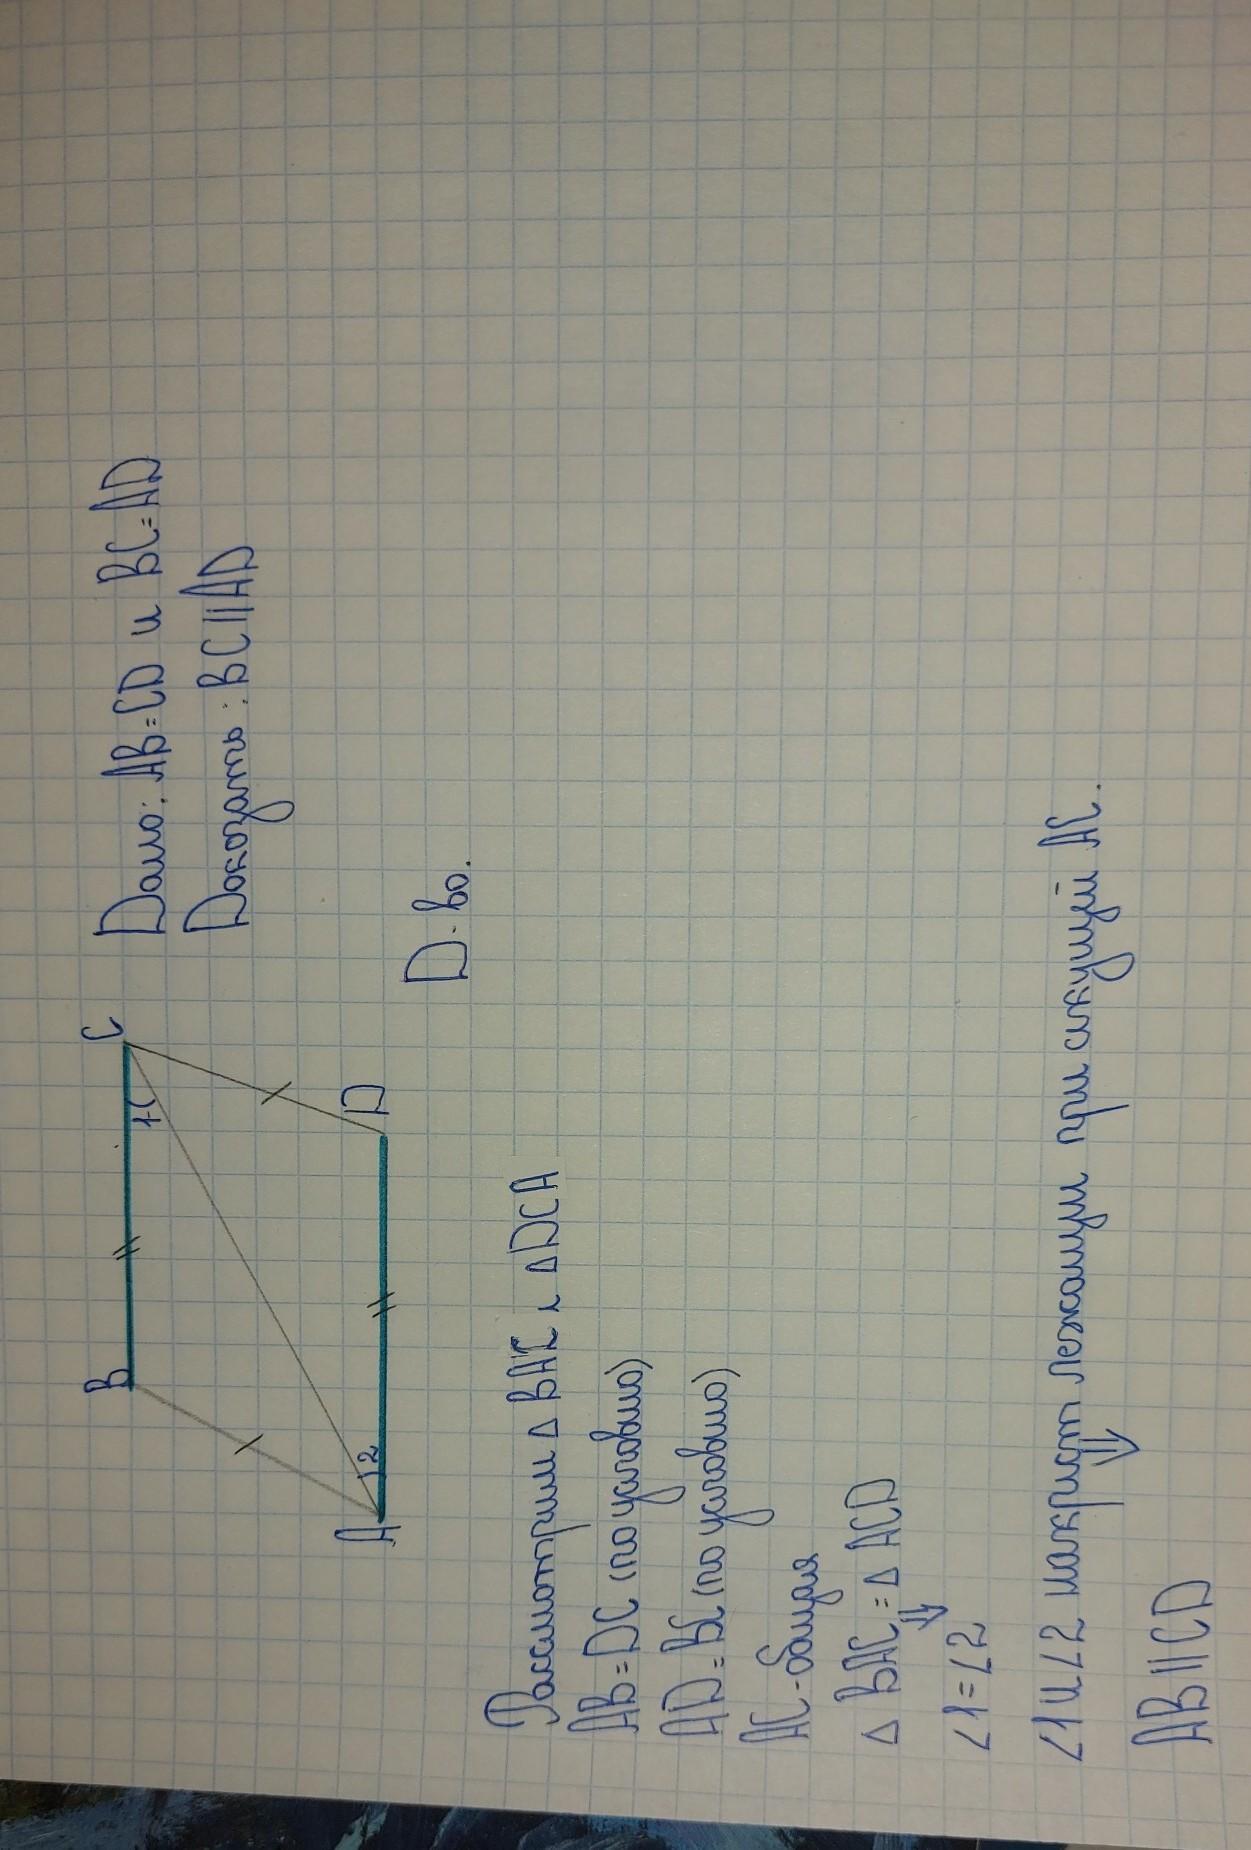 B
C
1
2
A
D
Дано: AB=CD и BC=AD
Доказать: BC||AD
D-во.
Рассмотрим △ BAC и △DCA
AB=DC (по условию)
AD=BC (по условию)
AC-общая
△ BAC=△ ACD
⇓
∠1=∠2
∠1 и ∠2 накрист лежащим при секущей AC.
⇓
AB||CD